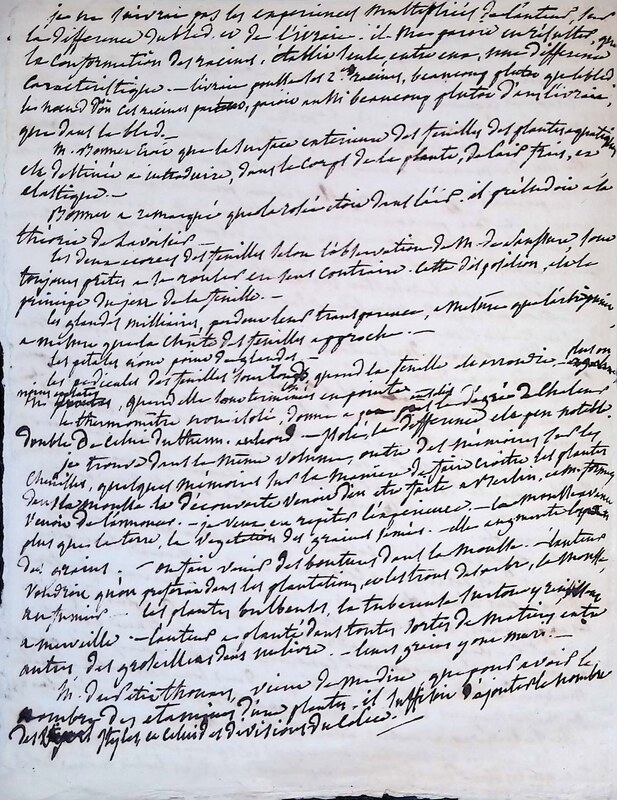 je ne suivrai pas les experiences multipliées de l'auteur, sur
la difference du bled et de l'ivraie. il me paroit en resulter, que
la conformation des racines, établit seule, entre eux, une difference
caracteristique. — l'ivraie pousse les 2des racines, beaucoup plutot que le bled
les noeuds d'où ces racines partent, paroit aussi beaucoup plutot dans l'ivraie,
que dans le bled. —
M. Bonnet croit que la surface exterieure des feuilles des plantes aquatiques
est destinée a introduire, dans le corps de la plante, de l'air frais, et
elastique. —
Bonnet a remarqué que la rosée etoit dans l'air. il préludoit a la
théorie de Lavoisier. —
les deux ecorces des feuilles selon l'observation de M. de Saussure, sont
toujours prètes a se rouler en sens contraire. cette disposition, est le
principe du jeu de la feuille. —
les glandes milliaires, perdent leur transparence, a mesure que
a mesure que la chute des feuilles approche. —
les petales n'ont point de glandes. —
les pedicules des feuilles sont longs, quand la feuille est arrondie, plus ou
moins, quand elles sont terminées en pointe
le thermomètre non isolé donne a le degrés de chaleur
double de celui du therm. — isolé, la difference est peu notable.
je trouve dans le même volume, outre des mémoires sur les
chenilles, quelques memoires sur la maniere de faire croitre les plantes
dans la mousse. la découverte venoit d'en etre faite a Berlin,
venoit de l'annoncer. — je veux, en repeter l'experience. — la mousse avance
plus que la terre, la vegetation des graines semées. — elle augmente
des graines. — on fait venir des boutures dans la mousse. — l'auteur
voudroit qu'on préferat dans les plantations, et les trous des arbres, la mousse
au fumier. — les plantes bulbeuses, la tubereuse surtout y réussissent
a merveille — l'auteur a planté dans toutes sortes de matieres, entre
autres, des groseillers dans un livre. — leurs graines y ont muri. —
M. du petit thouars, vient de me dire, que pour avoir le
nombre des etamines d'une plante, il suffisoit d'ajouter le nombre
des styles, et celui des divisions du calice. —